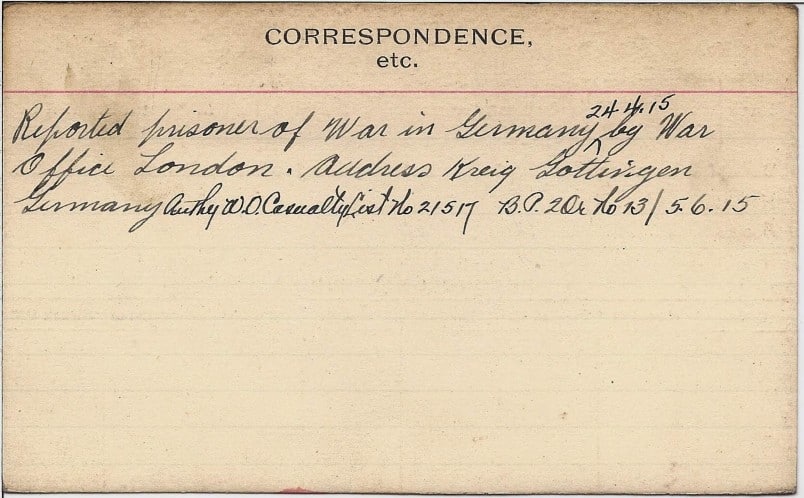 CORRESPONDENCE,
etc.
24.4.15
Reported prisoner of War in Germany ^ by War
Office London. Address Kreig Gottingen
Germany Authy W.O. Casualty List No 21517 B.P. 2 Or No 13/ 5.6.15